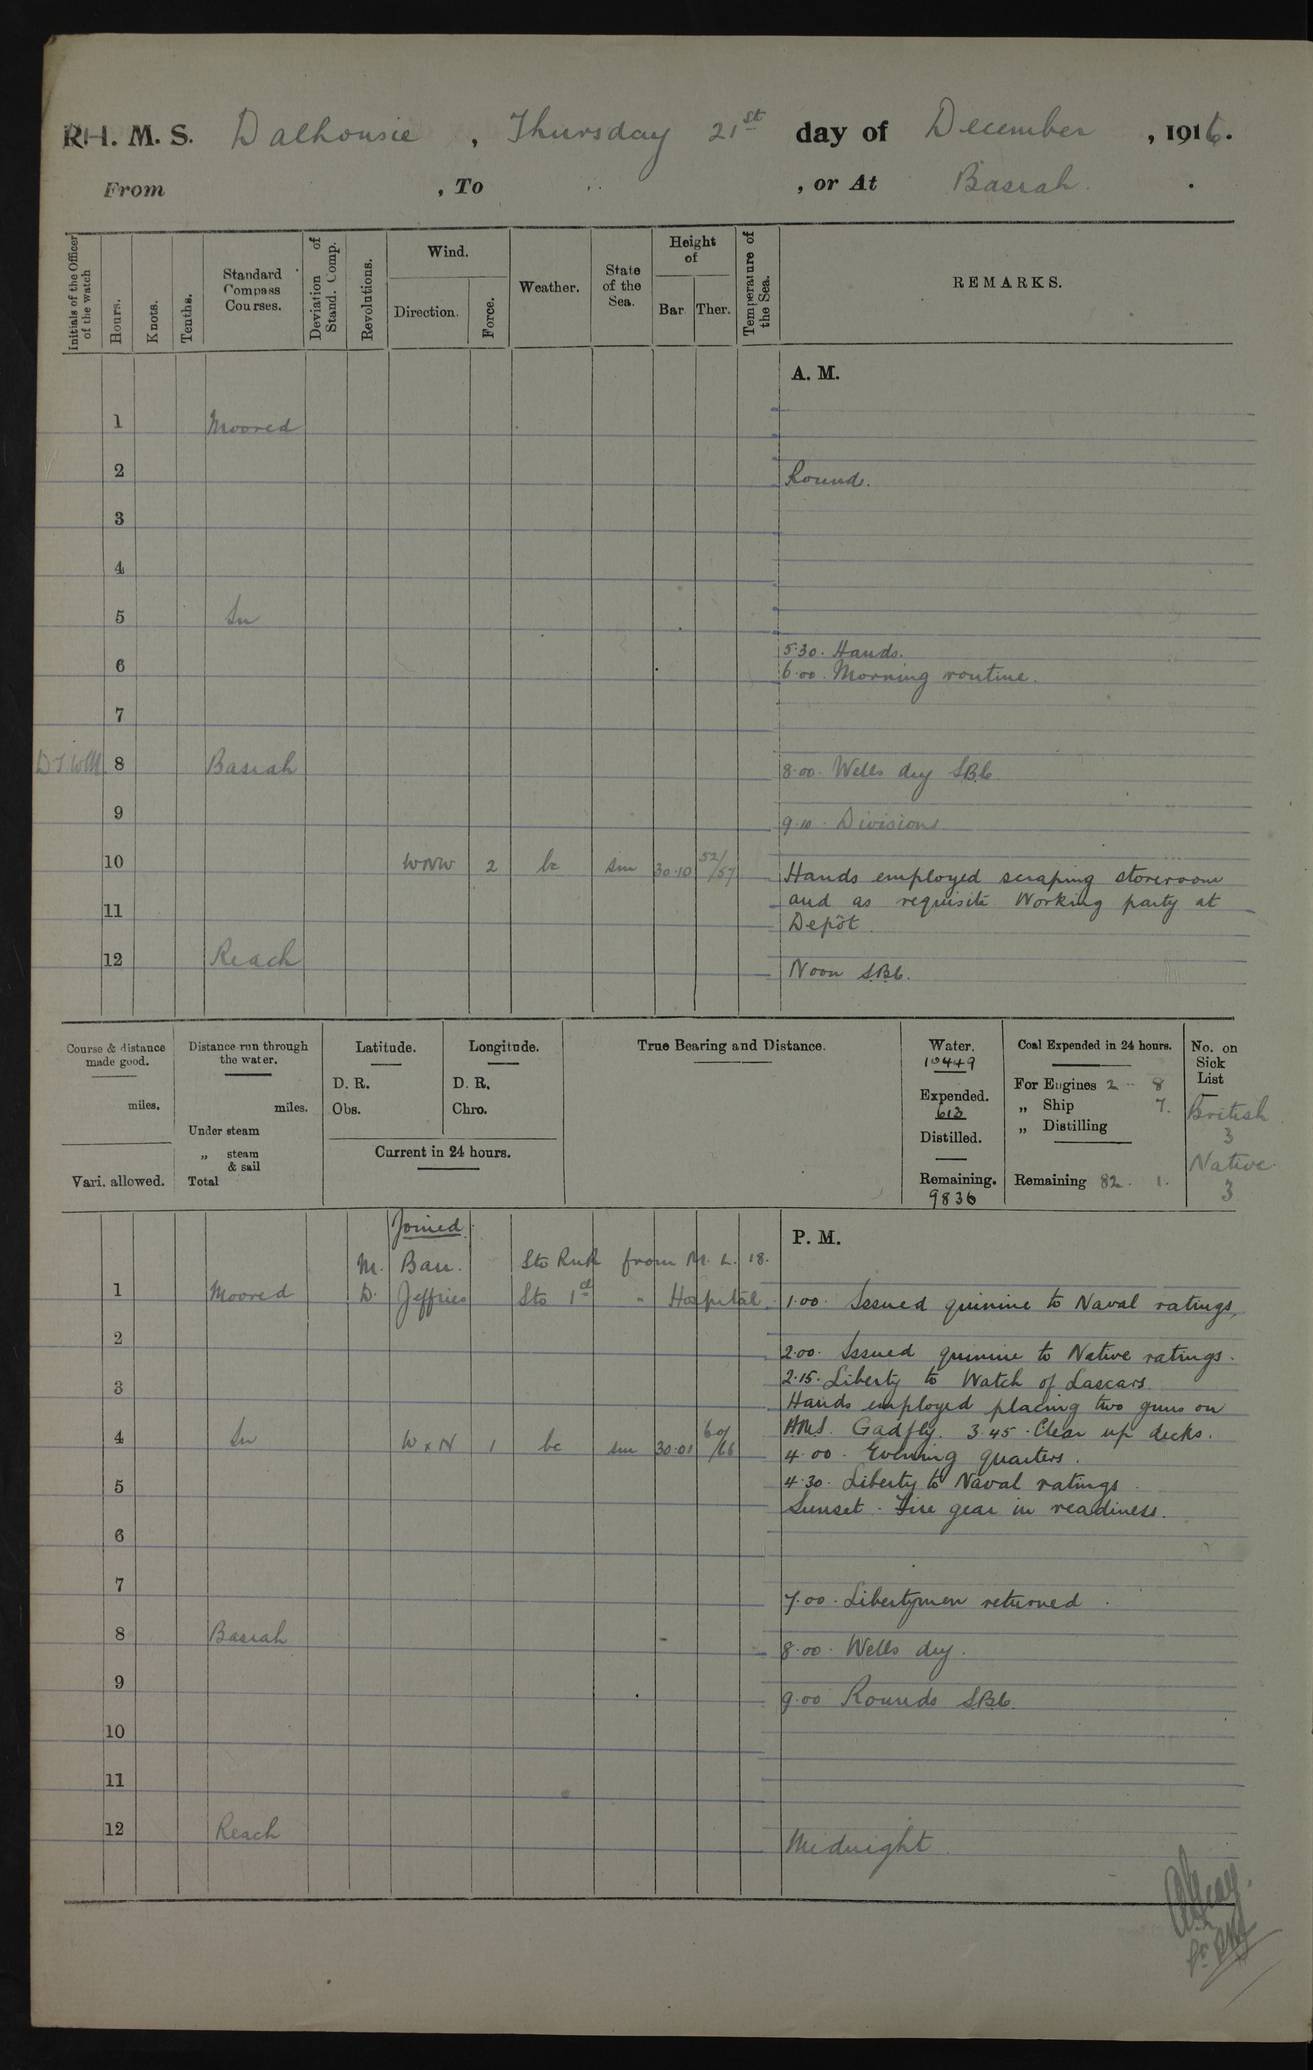 R.H. M. S. Dalhousie, Thursday 21st day of December, 1916.
From , To , or At Basrah.
Initials of the Officer of the watch
Hours.
Knots.
Tenths.
Standard Compass Courses.
Deviation of Stand. Comp.
Revolutions.
Wind.
Direction.
Force.
Weather.
State of the Sea.
Height of
Bar
Ther.
Temperature of the Sea.
REMARKS.
A. M.
1 Moored
2 Rounds.
3
4
5 In
5.30. Hands.
6
6.00. Morning routine.
7
8 Basrah 8.00. Wells dry
9
9.10. Divisions
10 WNW 2 bc sm 30.10 52/57 Hands employed scraping storeroom
11 and as requisite Working party at
Depôt.
12 Reach
Noon
Course & distance made good.
miles.
Vari. allowed.
Distance run through the water.
miles.
Under steam
„ steam & sail
Total
Latitude.
D. R.
Obs.
Longitude.
D. R.
Chro.
Current in 24 hours.
True Bearing and Distance.
Water.
10449
Expended.
613
Distilled.
Remaining.
9836
Coal Expended in 24 hours.
For Engines 2 . 8
„ Ship 7.
„ Distilling
Remaining 82. 1.
No. on Sick List
British
3
Native
3
Joined
P. M.
M. Barr. Sto RNR from M. L. 18.
1 Moored D. Jeffries Sto 1st " Hospital. 1.00. Issued quinine to Naval ratings.
2
2.00. Issued quinine to Native ratings.
2.15. Liberty to Watch of Lascars.
3
Hands employed placing two guns on
4 In W x N 1 bc sm 30.01 60/66 HMS. Gadfly. 3.45. Clear up decks.
4.00. Evening quarters.
5 4.30. Liberty to Naval ratings.
Sunset. Fire gear in readiness.
6
7
7.00. Libertymen returned.
8 Basrah
8.00. Wells dry.
9
9.00 Rounds
10
11
12 Reach
Midnight